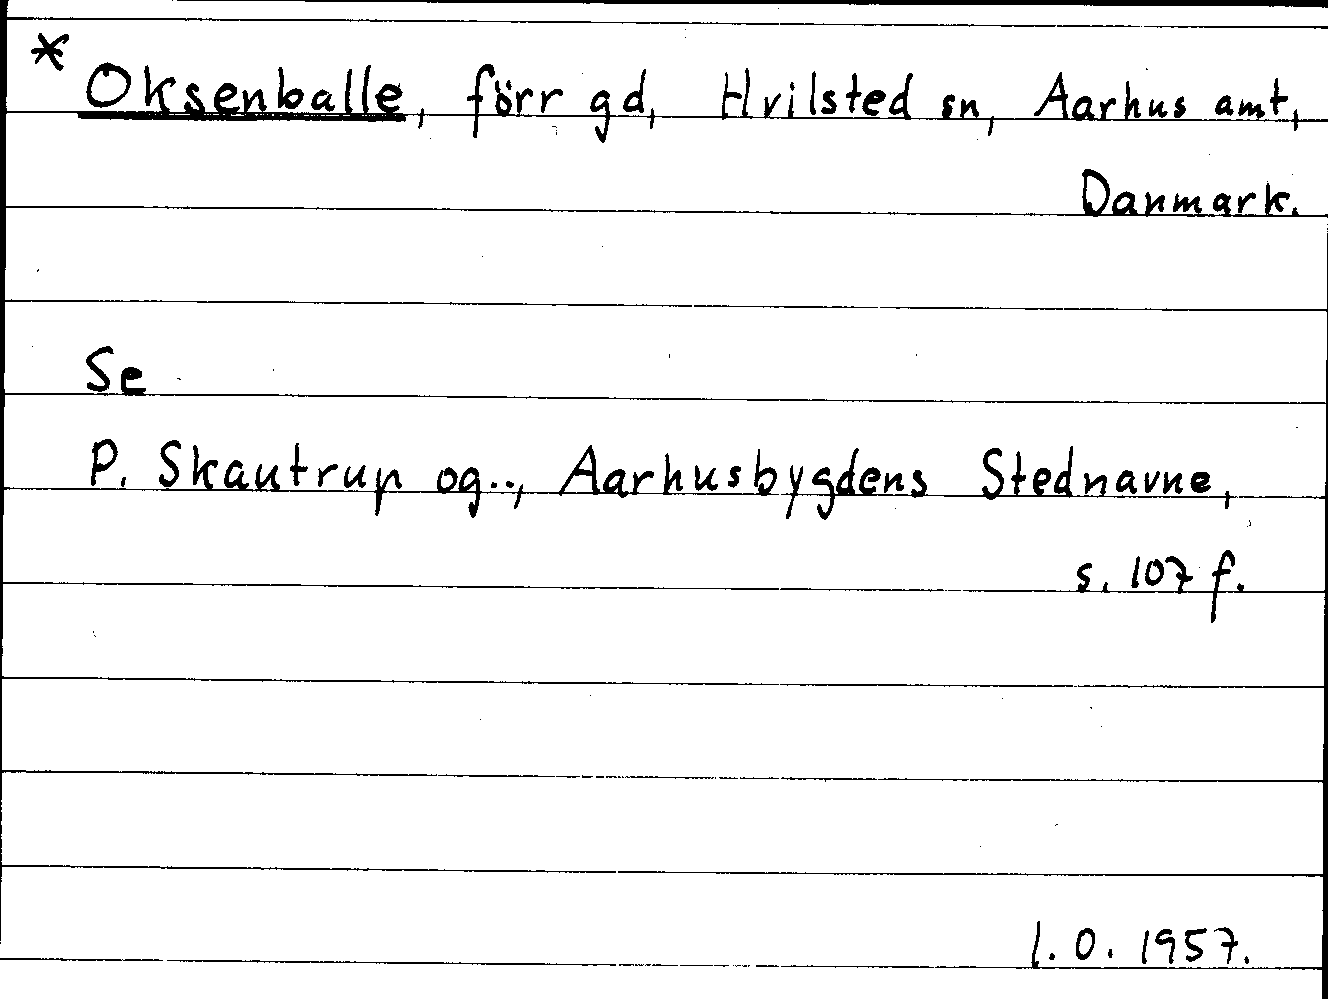 * Oksenballe, förr gd, Hvilsted sn, Aarhus amt,
Danmark.
Se
P. Skautrup og.., Aarhusbygdens Stednavne,
s. 107 f.
I. O. 1957.